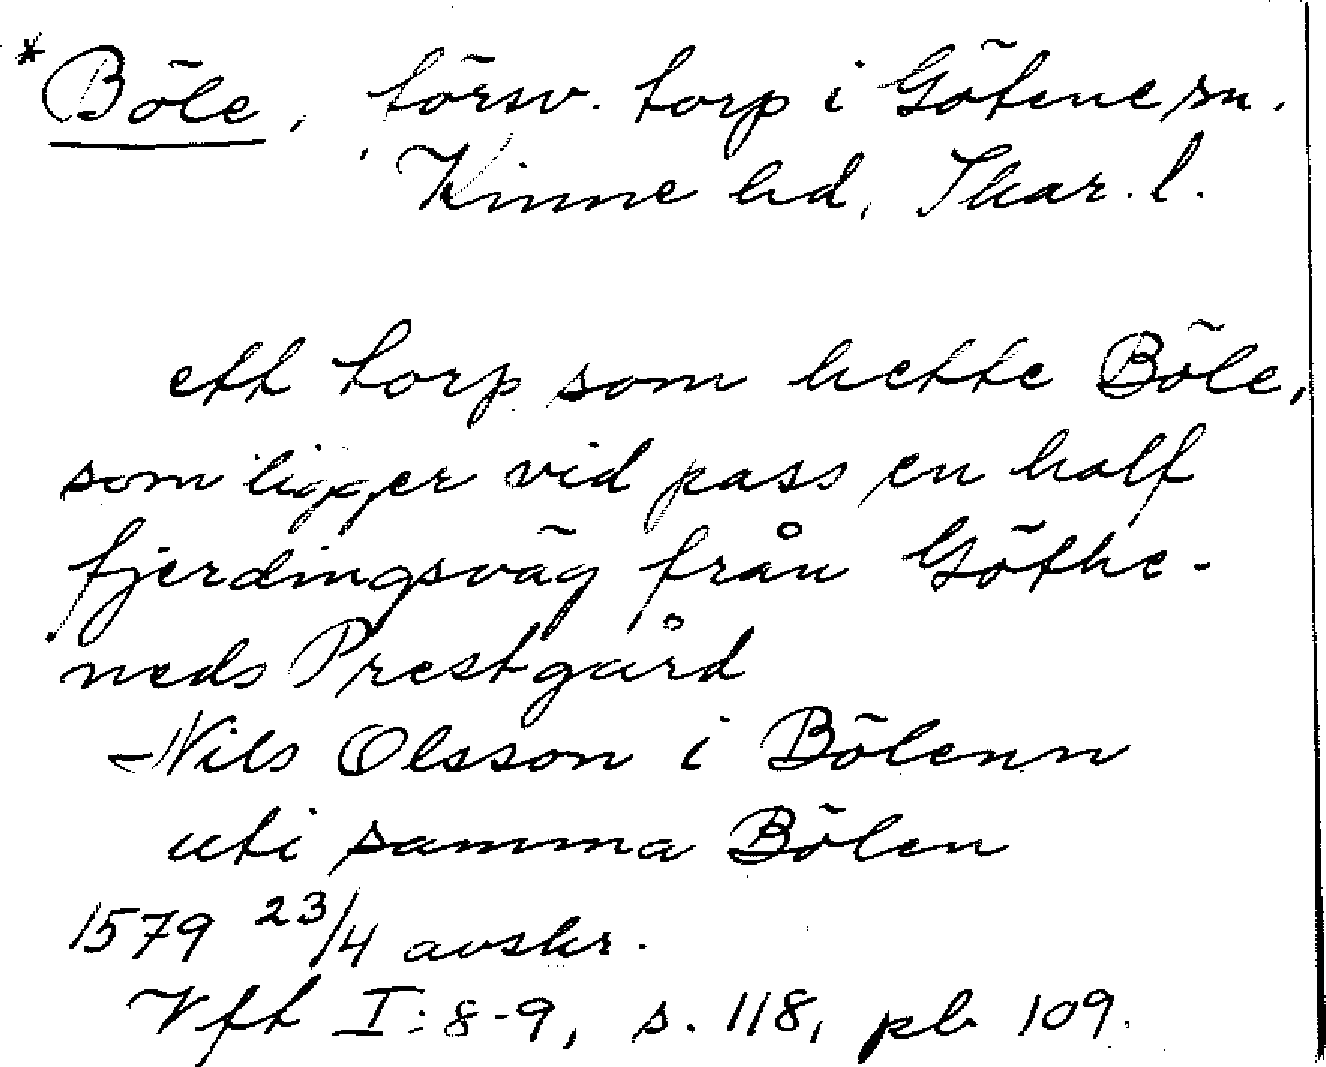 *Böle, försv. torp i Götene sn.
Kinne hd, Skar. l.
ett torp som hette Böle,
som ligger vid pass en half
fjerdingsväg från Göthe-
neds Prestgård
- Nils Olsson i Bölenn
uti samma Bölen
1579 23/4 avskr.
Vft I:8-9, s. 118, pb 109.